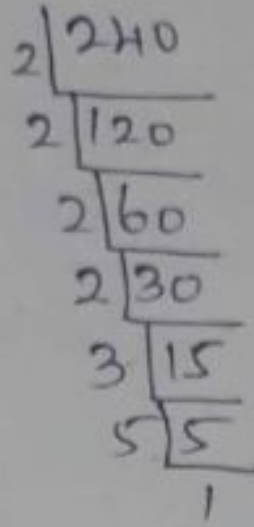 2 240
2 120
2 60
2 30
3 15
5 5
1